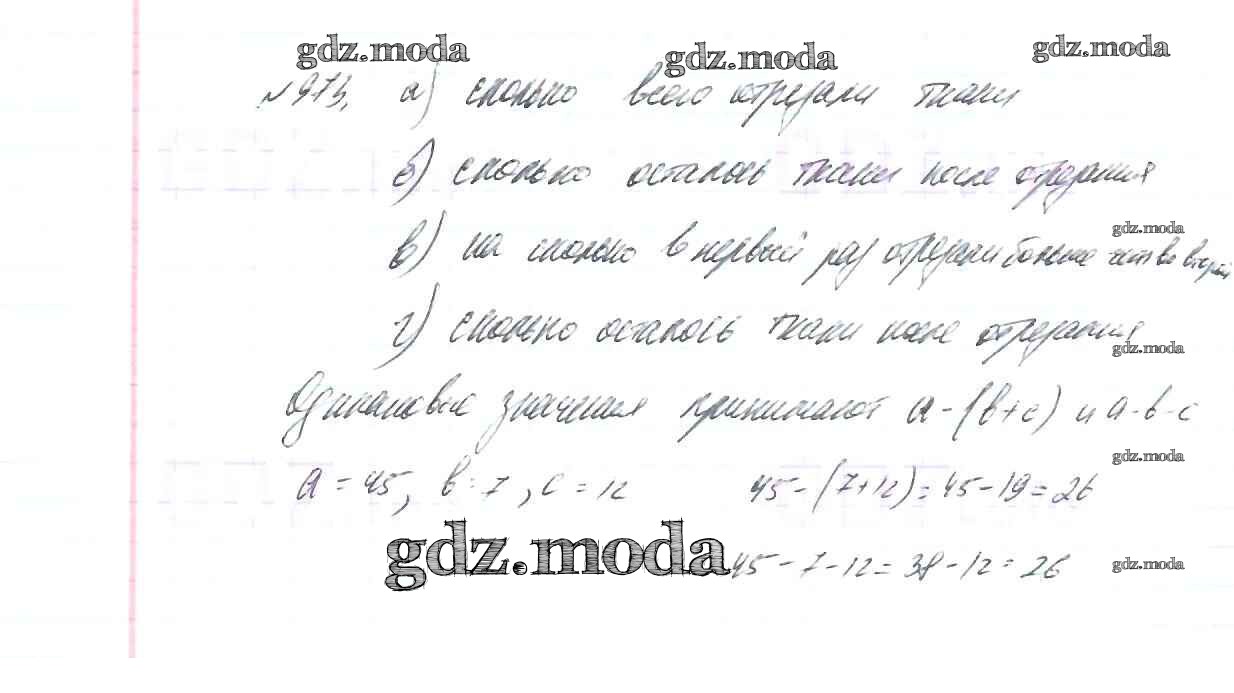 gdz.moda gdz.moda gdz.moda
№ 973. а) сколько всего отрезали ткани
б) сколько осталось ткани после отрезания
gdz.moda
в) на сколько в первый раз отрезали больше чем во второй
г) сколько осталось ткани после отрезания
gdz.moda
Одинаковые значения принимают a-(b+c) и a-b-c
gdz.moda
a = 45, b = 7, c = 12 45-(7+12)=45-19=26
gdz.moda 45-7-12=38-12=26 gdz.moda